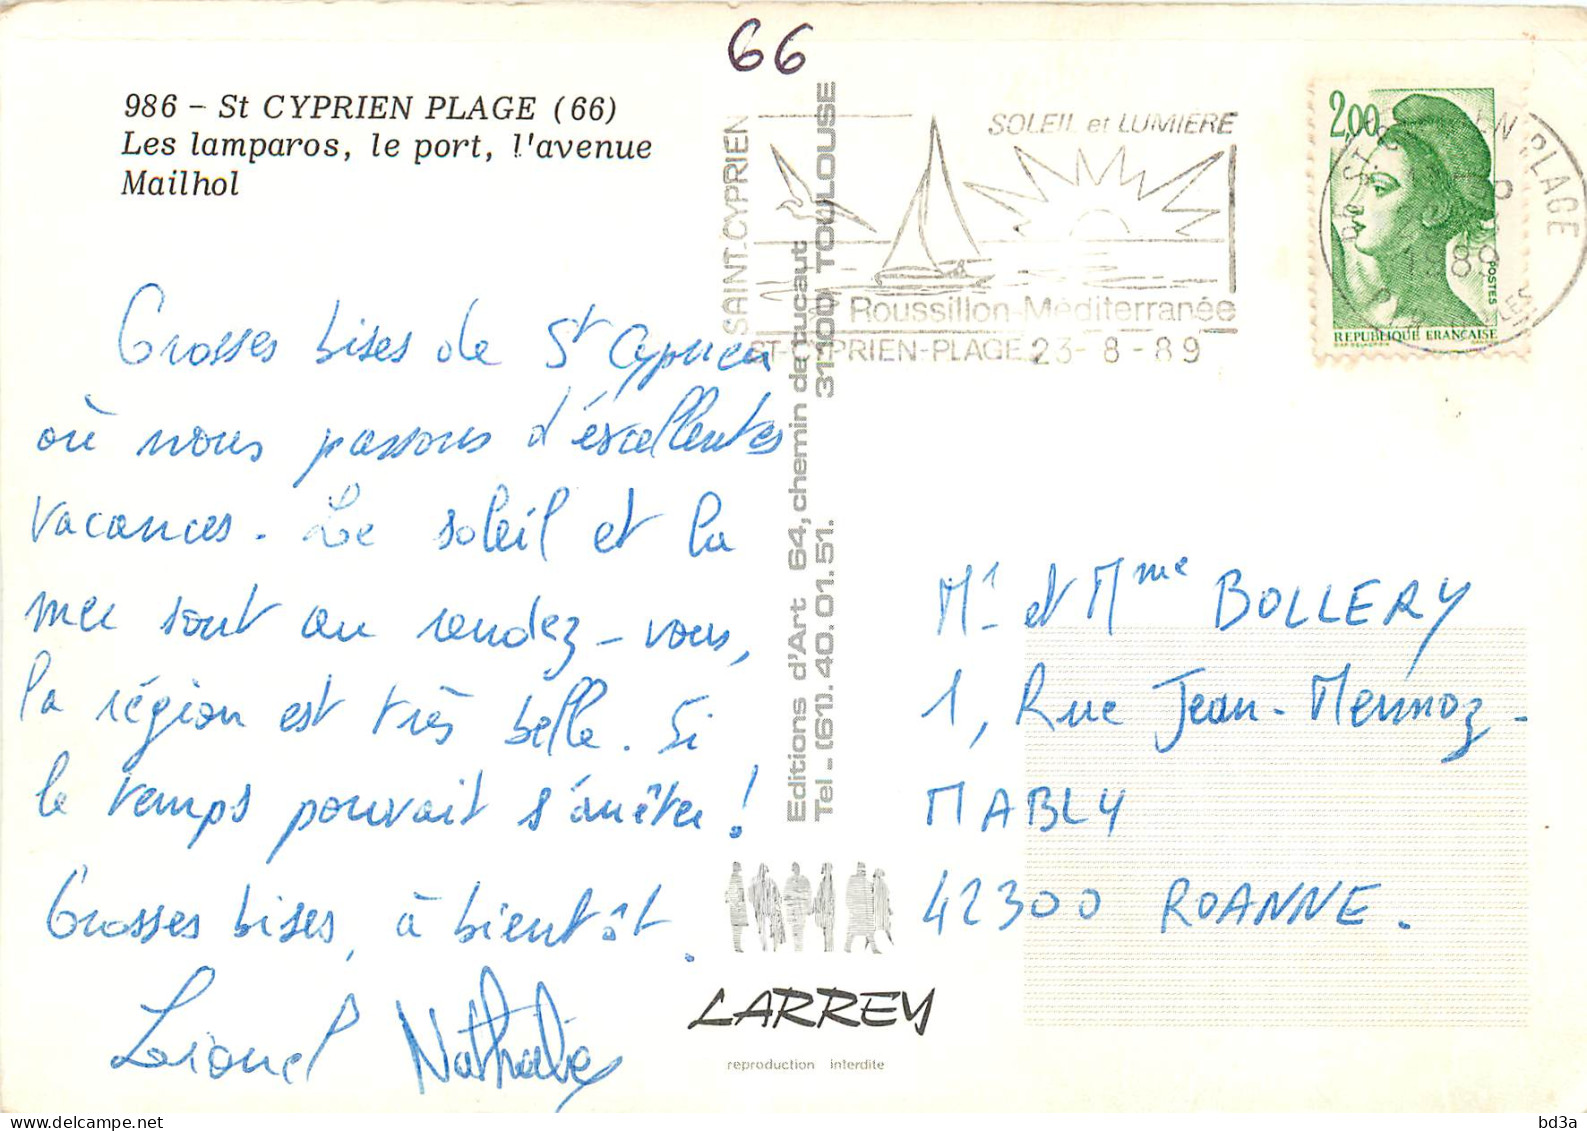 66
986 - St CYPRIEN PLAGE (66)
Les lamparos, le port, l'avenue
Mailhol
SAINT-CYPRIEN
SOLEIL et LUMIERE
Roussillon-Méditerranée
ST-CYPRIEN-PLAGE 23-8-89
2,00
POSTES
REPUBLIQUE FRANCAISE
PLAGE
1989
Editions d'Art 64, chemin de tucaut
Tel - (61). 40.01.51. 31100 TOULOUSE
Grosses bises de St Cyprien
où nous passons d'éxcellentes
vacances. Le soleil et la
mer sont au rendez-vous,
la région est très belle. Si
le temps pouvait s'arrêter !
Grosses bises, à bientôt.
Lionel Nathalie
Mr et Mme BOLLERY
1, Rue Jean-Mermoz-
MABLY
42300 ROANNE.
LARREY
reproduction interdite
bd3a